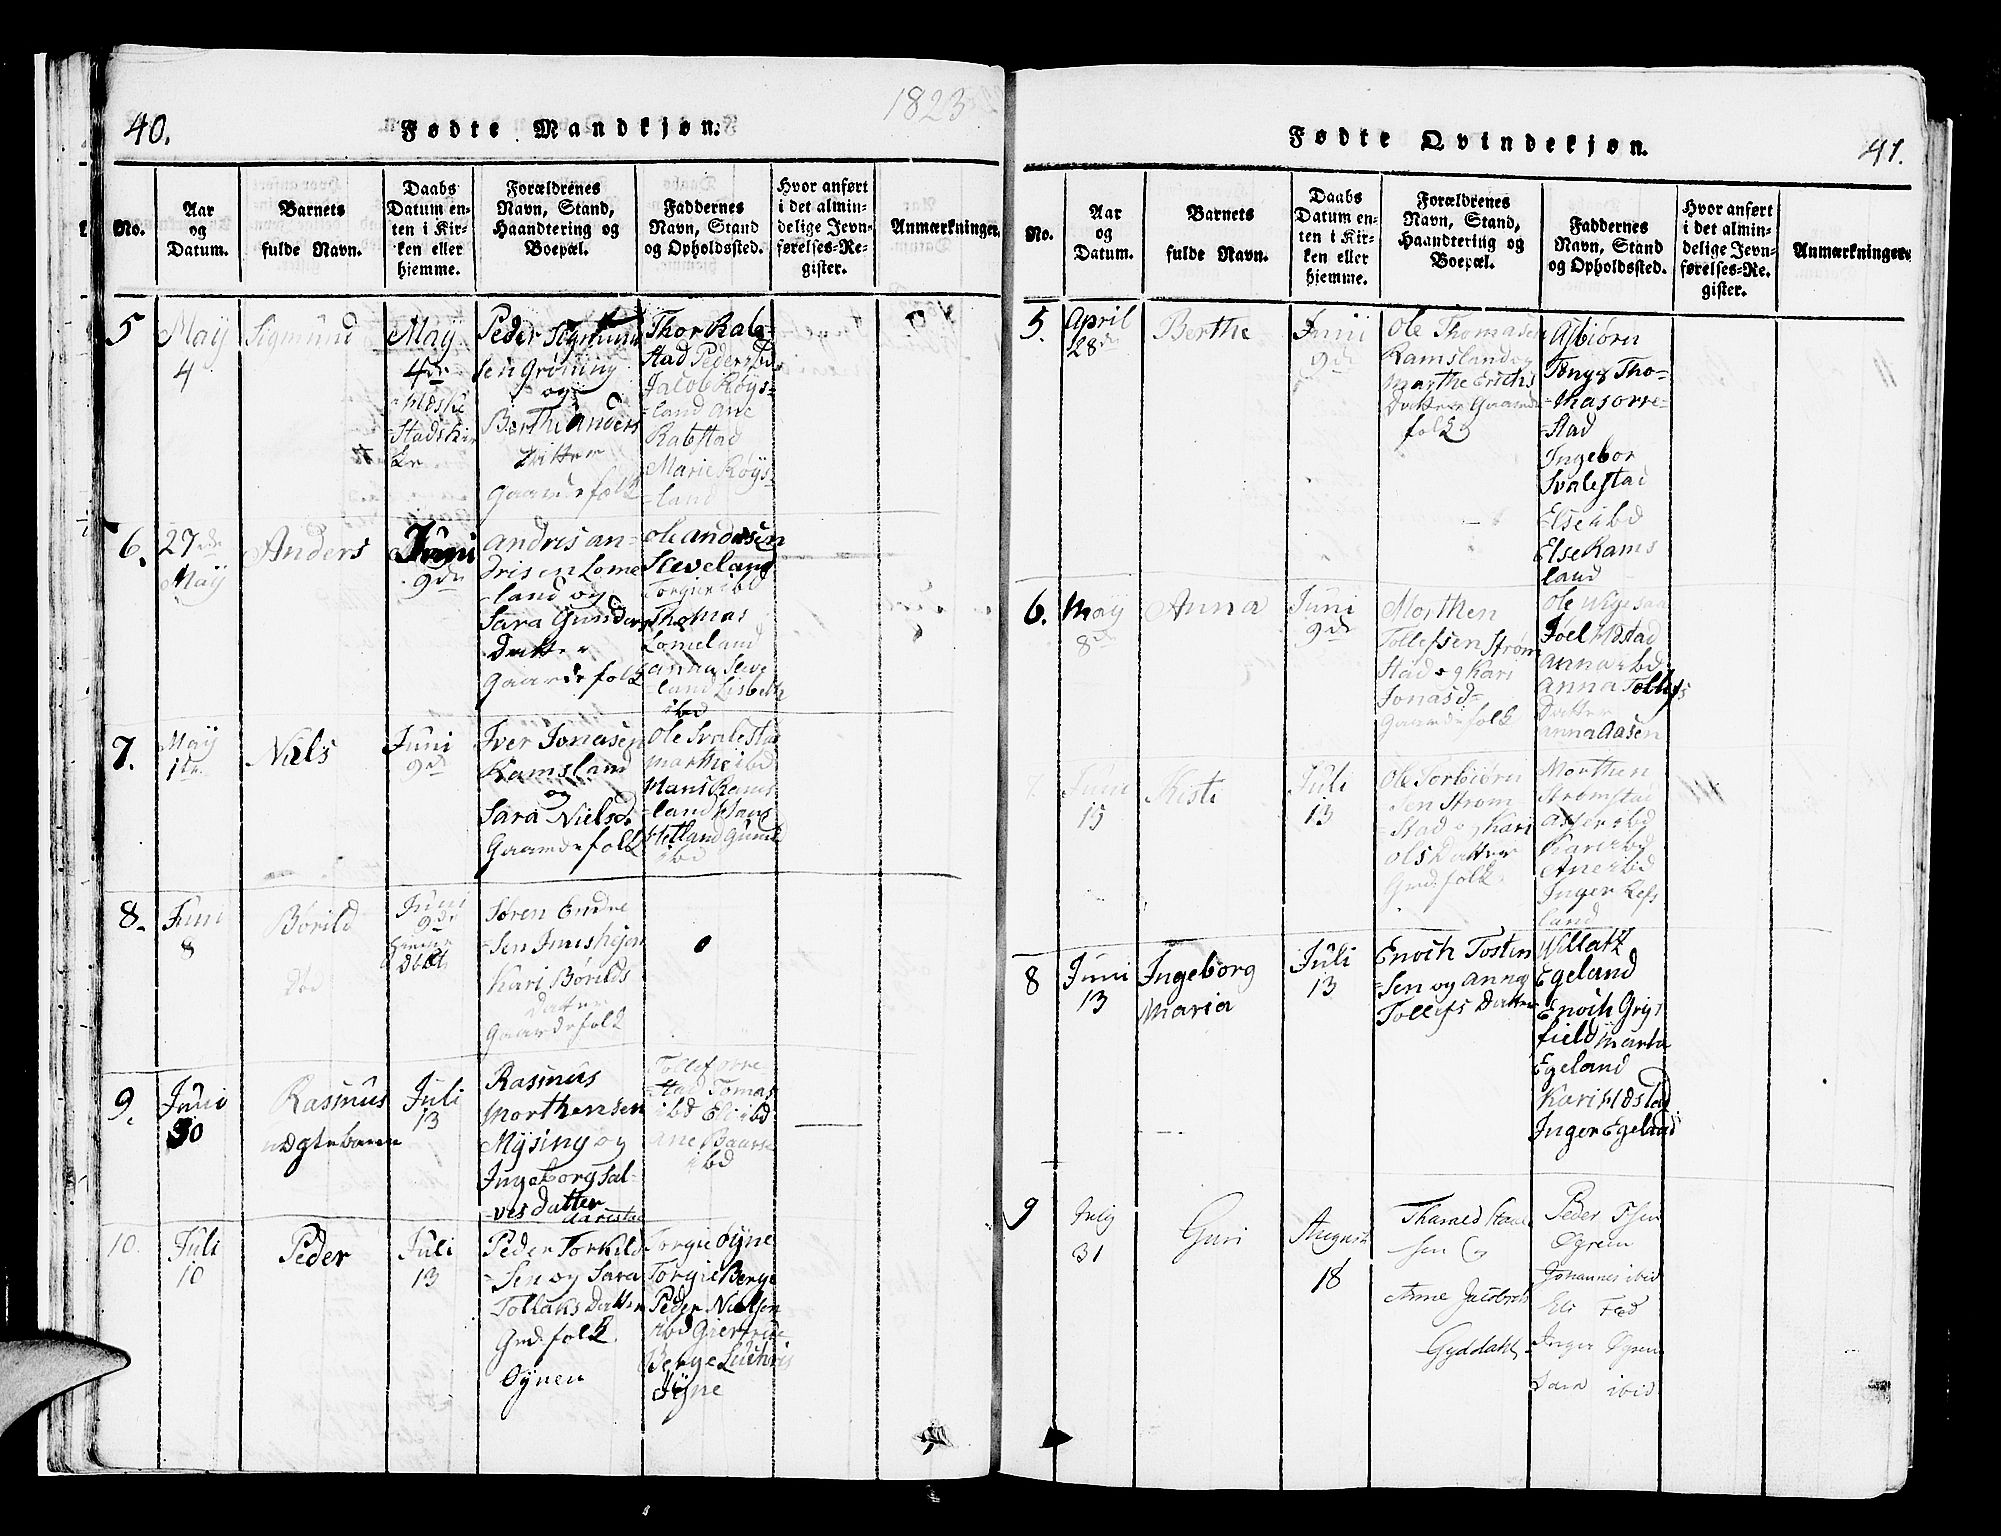 40.
Fødte Mandkjøn.
1823
No.
Aar
og
Datum.
Barnets
fulde Navn.
Daabs
Datum en-
ten i Kir-
ken eller
hjemme.
Forældrenes
Navn, Stand,
Haandtering og
Boepæl.
Faddernes
Navn, Stand
og Opholdssted.
Hvor anført
i det almin-
delige Jevn-
førelses-Re-
gister.
Anmærkninger.
5
May
4
Sigmund
May
4de
Stadskir
ke
Peder Sigmund
sen Grøning
og
Berthe Anders
Datter
Gaardefolk
Thor Rab-
stad Peder ibd
Jacob Røys-
land Ane
Rabstad
Marie Røys-
land
6.
27de
May
Anders
Juni
9de
Andris An-
drisen Lome
land og
Sara Gunders
Datter
Gaardefolk
Ole Andersen
Sleveland
Torgier ibd
Thomas
Lomeland
Anna Sleve
land Lisbeth
ibd
7.
May
1de
Niels
Juni
9de
Iver Jonasen
Ramsland
og
Sara Nielsd.
Gaardefolk
Ole Svalestad
Marthe ibd
Hans Rams
land Hans
Hetland Gunild
ibd
8.
Juni
8
Børild
død
Juni
9de
hieme
døbt
Søren Endre
sen
Kari Børilds
Datter
Gaardefolk
9.
Juni
30
Rasmus
uægtebarn
Juli
13
Rasmus
Morthensen
Mysing og
Ingeborg Sal-
vesdatter
Aarrestad
Tollef Orre
stad Tomas
ibd Eli ibd
Ane
ibd
10.
Juli
10
Peder
Juli
13
Peder Torkild
sen og Sara
Tollaks Datter
Grd.folk
Øynen
Torgie Øyne
Torgie Berge
Peder Nielsen
ibd Giertrue
Berge
Øyne
Fødte Qvindekjøn.
41.
No.
Aar
og
Datum.
Barnets
fulde Navn.
Daabs
Datum en-
ten i Kir-
ken eller
hjemme.
Forældrenes
Navn, Stand,
Haandtering og
Boepæl.
Faddernes
Navn, Stand
og Opholdssted.
Hvor anført
i det almin-
delige Jevn-
førelses-Re-
gister.
Anmærkninger.
5.
April
28de
Berthe
Junii
9de
Ole Thomasen
Ramsland og
Marthe Erichs
Datter Gaarde
folk
Asbiørn
Tho-
mas Orre-
stad
Ingebor
Svalestad
Else ibd
Else Rams
land
6.
May
8de
Anna
Juni
9de
Morthen
Tollefsen Strøm
stad og Kari
Jonasd-
Gaardefolk
Ole
Joel
Anna ibd
Anna Tollefs
Datter
Anna Aasen
7
Juni
15
Kisti
Juli
13
Ole Torbiørn
sen Strøm
stad og Kari
Olsdatter
Grd.folk
Morthen
Strømstad
Asser ibd
Kari ibd
Ane ibd
Inger Lefs
land
8
Juni
13
Ingeborg
Maria
Juli
13
Enoch Tosten
sen og Anna
Tollefs Datter
Willatz
Egeland
Enoch
field Marta
Egeland
Kari
Inger Egeland
9
July
31
Guri
August
18
sen og
Anne Jacobsd.
Gyddahl
Peder
Øgrein
Johannes ibid
Eli
Inger
Sara ibid